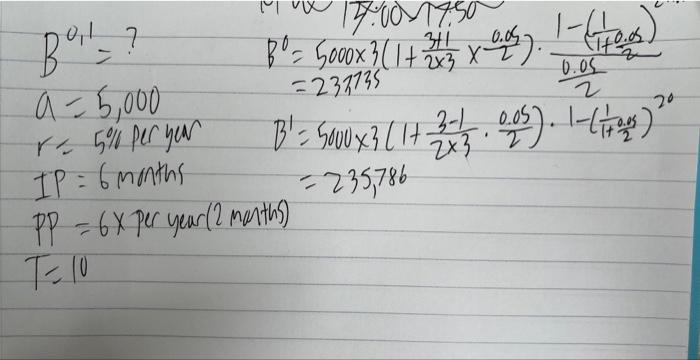 17:00-17:50
B^{0,1} = ?
a = 5,000
r = 5% per year
IP = 6 months
PP = 6x per year (2 months)
T = 10
B^0 = 5000 x 3 (1 + \frac{3+1}{2x3} x \frac{0.05}{2}) \cdot \frac{1 - (\frac{1}{1+\frac{0.05}{2}})}{\frac{0.05}{2}}
= 237735
B^1 = 5000 x 3 (1 + \frac{3-1}{2x3} \cdot \frac{0.05}{2}) \cdot 1 - (\frac{1}{1+\frac{0.05}{2}})^{20}
= 235,786